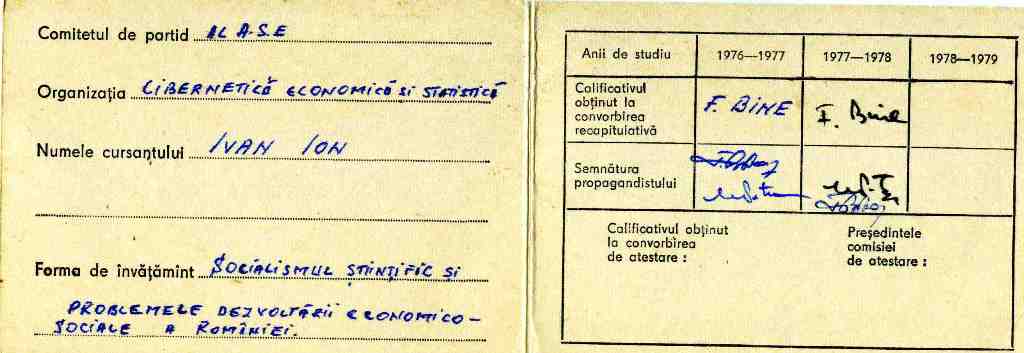 Comitetul de partid AL A.S.E
Organizația CIBERNETICĂ ECONOMICĂ ȘI STATISTICĂ
Numele cursanțului IVAN ION
Forma de învățămînt SOCIALISMUL ȘTIINȚIFIC ȘI
PROBLEMELE DEZVOLTĂRII ECONOMICO-
SOCIALE A ROMÂNIEI.
Anii de studiu 1976—1977 1977—1978 1978—1979
Calificativul
obținut la
convorbirea
recapitulativă
F. BINE F. Bine
Semnătura
propagandistului
Calificativul obținut
la convorbirea
de atestare :
Președintele
comisiei
de atestare :